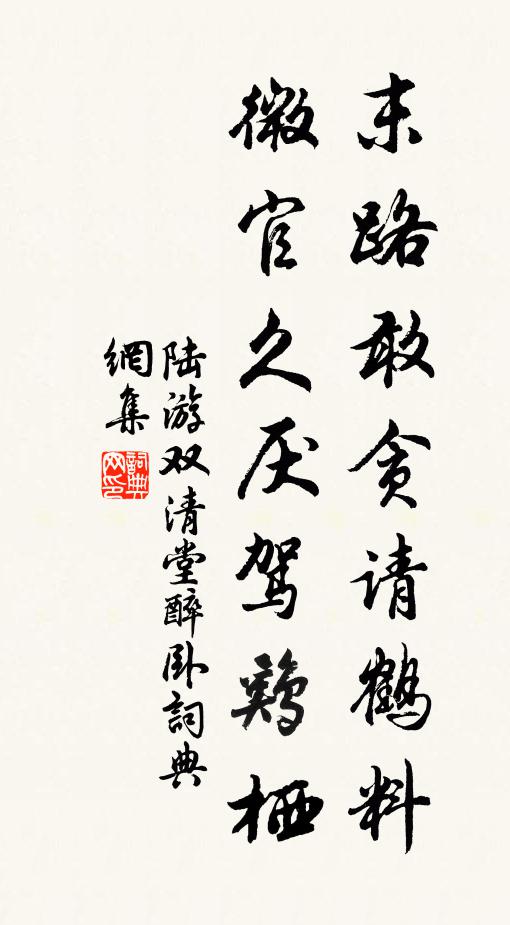 末路敢贪请鹤料
微官久厌驾鷄栖
陆游双清堂醉卧詞典
網集
詞典网印